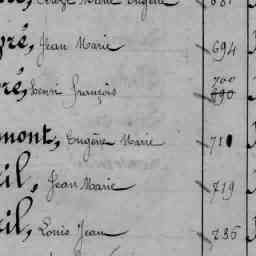 Marie Eugène 681
pré, Jean Marie 694
ré, Henri François 700 690
mont, Eugène Marie 711
il, Jean Marie 719
il, Louis Jean 736